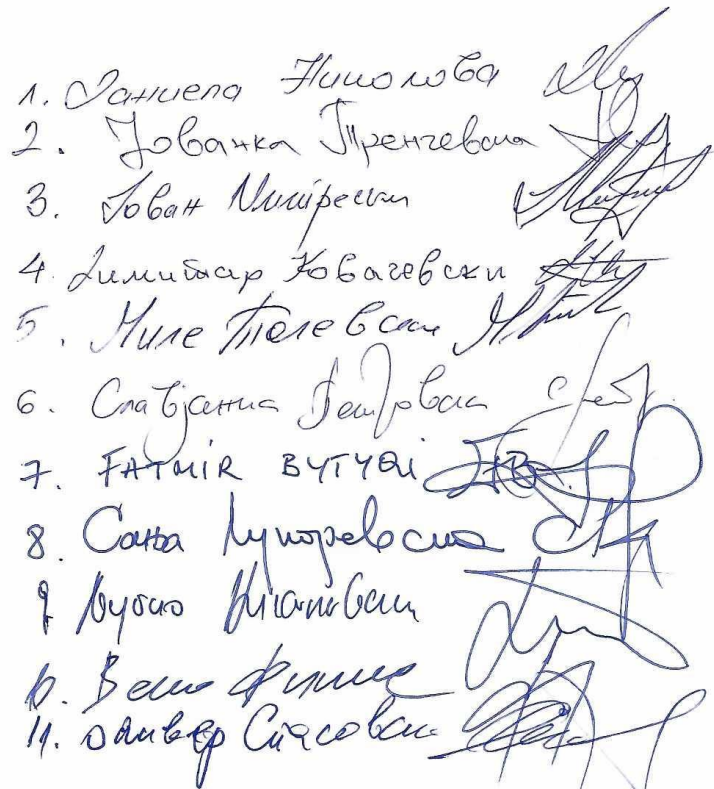 1. Даниела Николова
2. Јованка Тренчевска
3. Јован Митрески
4. Димитар Ковачевски
5. Миле Талевски
6. Славјанка Петровска
7. FATMIR BYTYQI
8. Сања Лукаревска
9 Љупчо
10. Веле
11. Оливер Спасовски